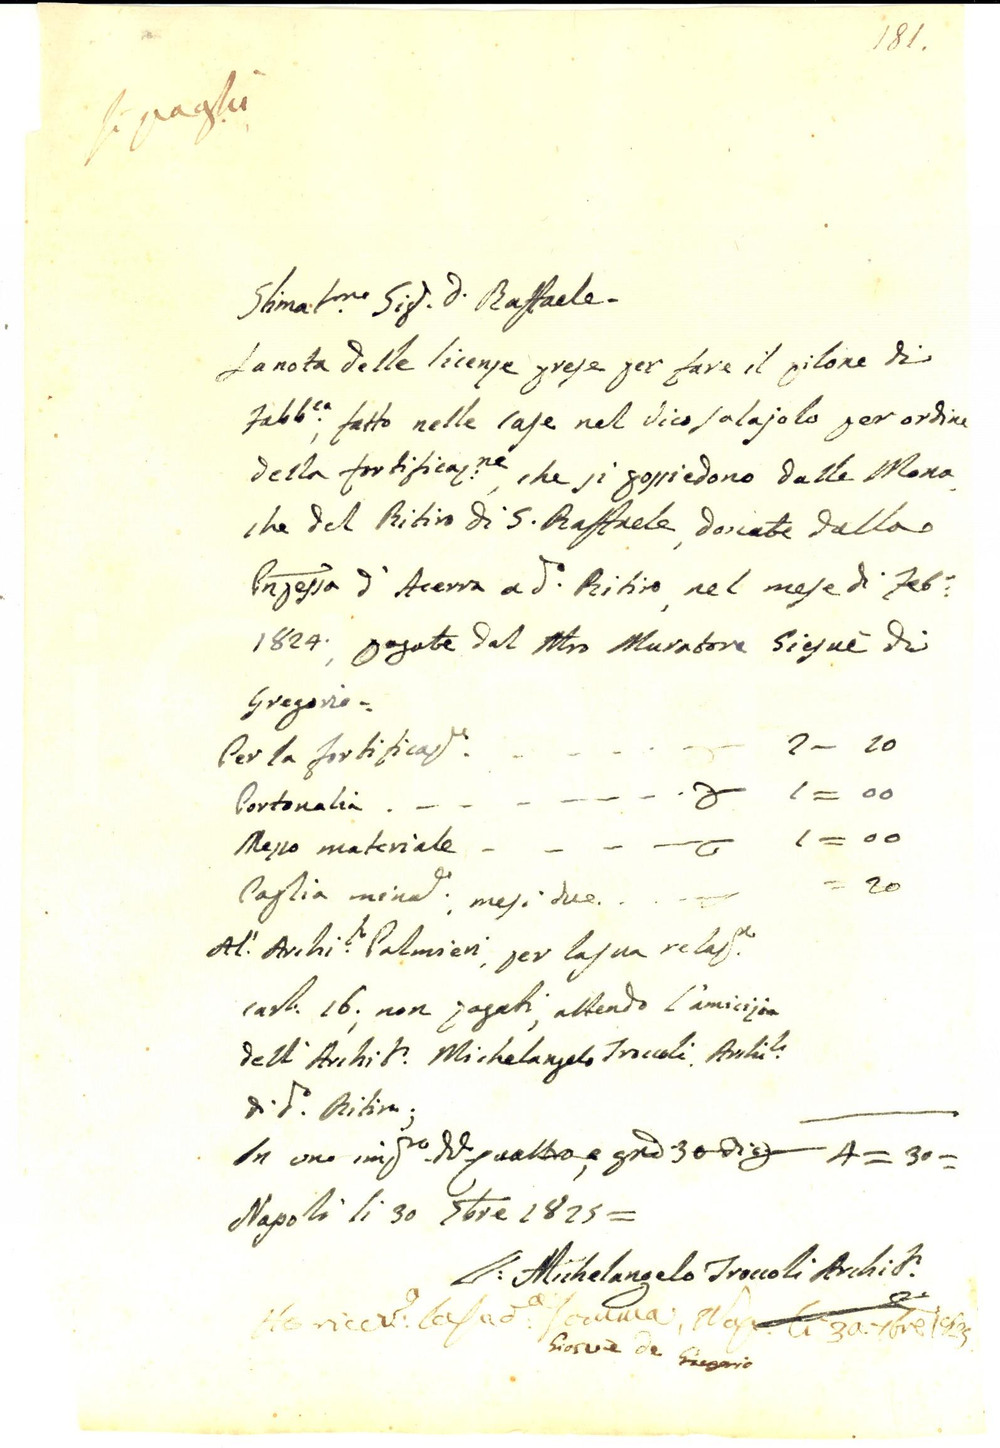 181.
Si paghi
Stimat.mo Sig.r D. Raffaele -
La nota delle licenze prese per fare il pilone di
Fabb.ca, fatto nelle case nel vico solajolo per ordine
della fortificaz.ne, che si possiedono dalle Mona
che del Ritiro di S. Raffaele, donate dalla
Pnpessa d' Acerra a d.o Ritiro, nel mese di Feb.o
1824., pagate dal Mro Muratore Giesuè di
Gregorio -
Per la fortificaz.e 2 - 20
Portonalia 1 = 00
Mezzo materiale 1 = 00
Paglia minu, mesi due = 20
Al' Archi.to Palmieri, per la sua relaz.ne
carl. 16, non pagati, attendo l'amicizia
dell' Archi.to Michelangelo Troccoli, Archi.to
di d.o Ritiro;
In uno quattro, e gra 30 4 = 30 =
Napoli li 30 7bre 1825 =
Michelangelo Troccoli Archi.to
Ho ricev.to la sud.a somma, Nap. li 30 7bre 1825
Giosuè de Gregorio